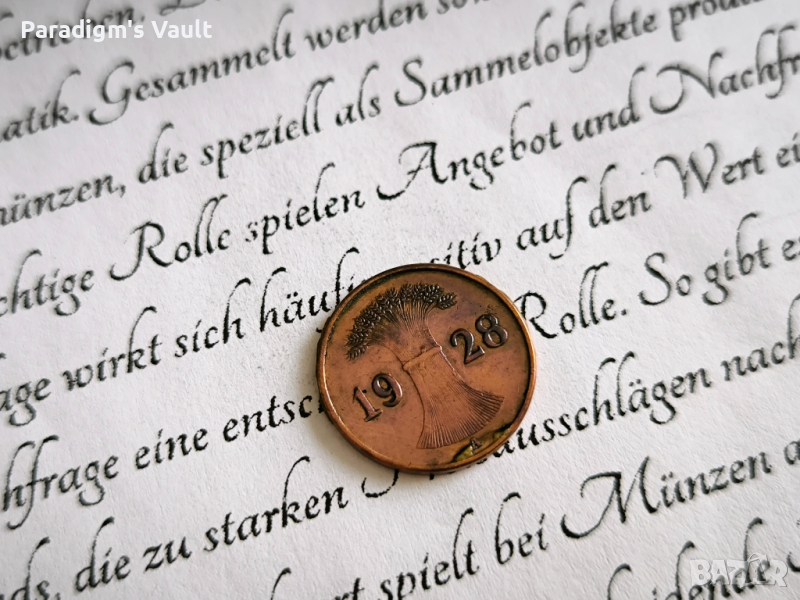 Paradigm's Vault
betrieben,
Gesammelt werden
matik. Gesammelt werden
münzen, die speziell als Sammelobjekte
chtige Rolle spielen Angebot und Nachfr
age wirkt sich häufig sitiv auf den Wert ei
hfrage eine entsc Rolle. So gibt e
ds, die zu starken ausschlägen nach
spielt bei Münzen a
eidende
1928
A
BAZAR